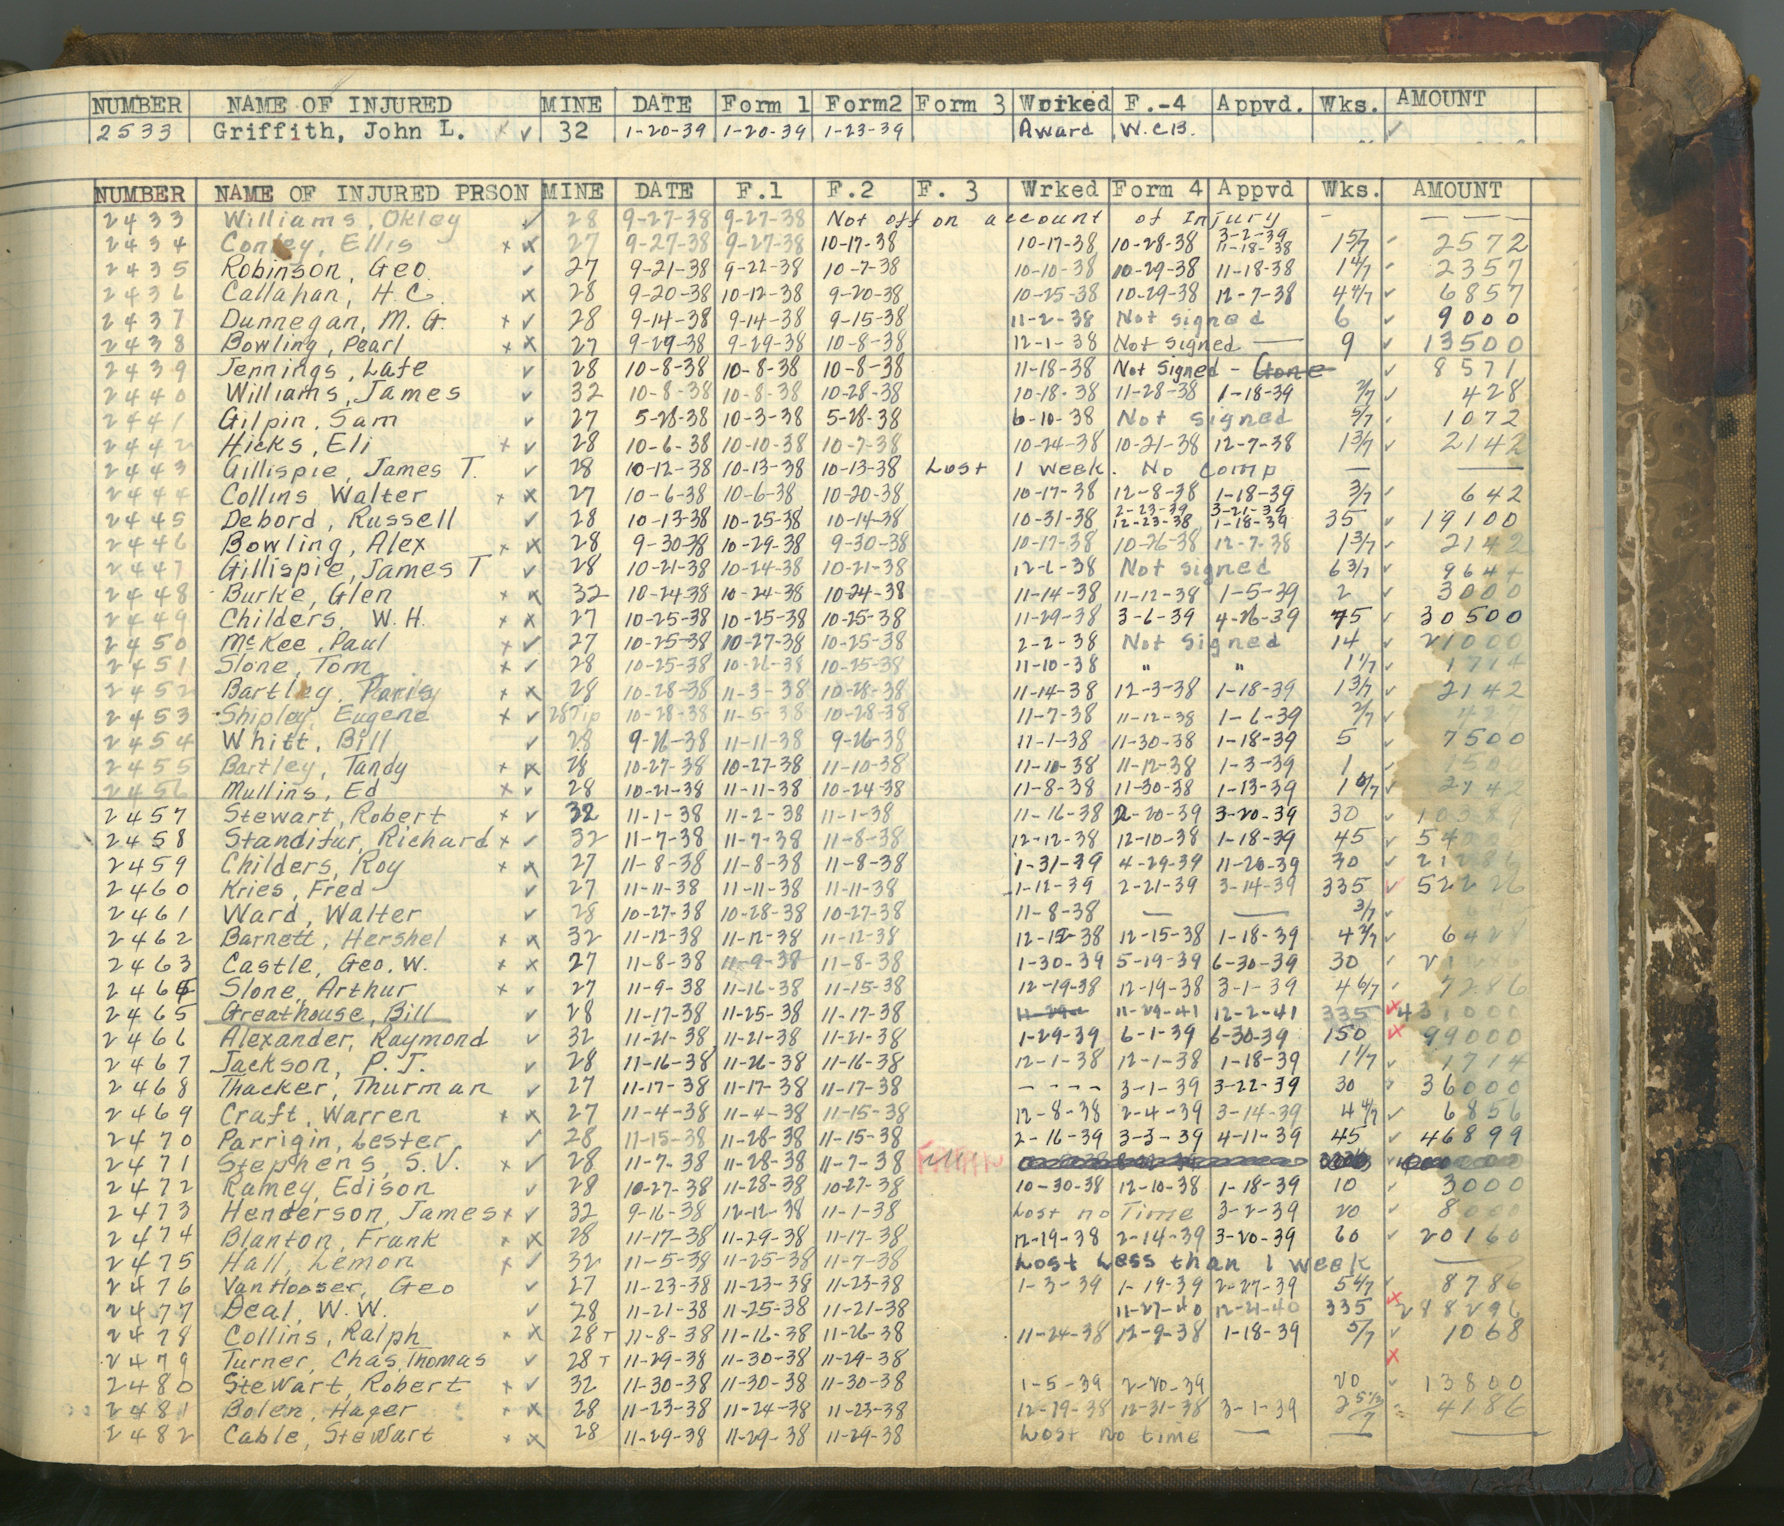 NUMBER NAME OF INJURED MINE DATE Form 1 Form2 Form 3 Worked F.-4 Appvd. Wks. AMOUNT
2533 Griffith, John L. x ✓ 32 1-20-39 1-20-39 1-23-39 Award W.C.B. ✓
NUMBER NAME OF INJURED PRSON MINE DATE F.1 F.2 F. 3 Wrked Form 4 Appvd Wks. AMOUNT
2433 Williams, Okley ✓ 28 9-27-38 9-27-38 Not off on account of Injury - — — —
2434 Conley, Ellis x x 27 9-27-38 9-27-38 10-17-38 10-17-38 10-28-38 3-2-39 11-18-38 1 5/7 2572
2435 Robinson, Geo. ✓ 27 9-21-38 9-22-38 10-7-38 10-10-38 10-29-38 11-18-38 1 4/7 2357
2436 Callahan, H.C. x 28 9-20-38 10-12-38 9-20-38 10-25-38 10-29-38 12-7-38 4 4/7 ✓ 6857
2437 Dunnegan, M.G. x ✓ 28 9-14-38 9-14-38 9-15-38 11-2-38 Not signed 6 ✓ 9000
2438 Bowling, Pearl x x 27 9-29-38 9-29-38 10-8-38 12-1-38 Not signed — 9 ✓ 13500
2439 Jennings, Late ✓ 28 10-8-38 10-8-38 10-8-38 11-18-38 Not Signed - Gone ✓ 8571
2440 Williams, James ✓ 32 10-8-38 10-8-38 10-28-38 10-18-38 11-28-38 1-18-39 2/7 ✓ 428
2441 Gilpin, Sam ✓ 27 5-28-38 10-3-38 5-28-38 6-10-38 Not signed 5/7 ✓ 1072
2442 Hicks, Eli x ✓ 28 10-6-38 10-10-38 10-7-38 10-24-38 10-21-38 12-7-38 1 3/7 ✓ 2142
2443 Gillispie, James T. ✓ 28 10-12-38 10-13-38 10-13-38 Lost 1 week. No Comp — —
2444 Collins, Walter x x 27 10-6-38 10-6-38 10-20-38 10-17-38 12-8-38 1-18-39 3/7 ✓ 642
2445 Debord, Russell ✓ 28 10-13-38 10-25-38 10-14-38 10-31-38 2-23-39 12-23-38 3-21-39 1-18-39 35 ✓ 19100
2446 Bowling, Alex x x 28 9-30-38 10-29-38 9-30-38 10-17-38 10-26-38 12-7-38 1 3/7 ✓ 2142
2447 Gillispie, James T ✓ 28 10-21-38 10-24-38 10-21-38 12-6-38 Not signed 6 3/7 ✓ 9644
2448 Burke, Glen x x 32 10-24-38 10-24-38 10-24-38 11-14-38 11-12-38 1-5-39 2 ✓ 3000
2449 Childers, W.H. x x 27 10-25-38 10-25-38 10-25-38 11-29-38 3-6-39 4-26-39 75 ✓ 30500
2450 McKee, Paul x ✓ 27 10-25-38 10-27-38 10-25-38 2-2-38 Not Signed 14 ✓ 21000
2451 Slone, Tom x ✓ 28 10-25-38 10-26-38 10-25-38 11-10-38 " " 1 1/7 ✓ 1714
2452 Bartley, Paris x x 28 10-28-38 11-3-38 10-28-38 11-14-38 12-3-38 1-18-39 1 3/7 ✓ 2142
2453 Shipley, Eugene x ✓ 28Tip 10-28-38 11-5-38 10-28-38 11-7-38 11-12-38 1-6-39 2/7 ✓
2454 Whitt, Bill ✓ 28 9-26-38 11-11-38 9-26-38 11-1-38 11-30-38 1-18-39 5 ✓ 7500
2455 Bartley, Tandy x x 28 10-27-38 10-27-38 11-10-38 11-10-38 11-12-38 1-3-39 1 ✓
2456 Mullins, Ed x ✓ 28 10-21-38 11-11-38 10-24-38 11-8-38 11-30-38 1-13-39 1 6/7 ✓
2457 Stewart, Robert x ✓ 32 11-1-38 11-2-38 11-1-38 11-16-38 2-20-39 3-20-39 30 ✓
2458 Standifur, Richard x ✓ 32 11-7-38 11-7-38 11-8-38 12-12-38 12-10-38 1-18-39 45 ✓
2459 Childers, Roy x x 27 11-8-38 11-8-38 11-8-38 1-31-39 4-29-39 11-20-39 30 ✓
2460 Kries, Fred ✓ 27 11-11-38 11-11-38 11-11-38 1-12-39 2-21-39 3-14-39 335 ✓ 52226
2461 Ward, Walter ✓ 28 10-27-38 10-28-38 10-27-38 11-8-38 — — 3/7 ✓
2462 Barnett, Hershel x x 32 11-12-38 11-12-38 11-12-38 12-12-38 12-15-38 1-18-39 4 2/7 ✓ 6428
2463 Castle, Geo. W. x x 27 11-8-38 11-9-38 11-8-38 1-30-39 5-19-39 6-30-39 30 ✓
2464 Slone, Arthur x ✓ 27 11-9-38 11-16-38 11-15-38 12-19-38 12-19-38 3-1-39 4 6/7 ✓ 7286
2465 Greathouse, Bill ✓ 28 11-17-38 11-25-38 11-17-38 11-29-41 12-2-41 335 x 431000
2466 Alexander, Raymond ✓ 32 11-21-38 11-21-38 11-21-38 1-29-39 6-1-39 6-30-39 150 x 99000
2467 Jackson, P.J. ✓ 28 11-16-38 11-26-38 11-16-38 12-1-38 12-1-38 1-18-39 1 1/7 ✓ 1714
2468 Thacker, Thurman ✓ 27 11-17-38 11-17-38 11-17-38 - - - - 3-1-39 3-22-39 30 ✓ 36000
2469 Craft, Warren x x 27 11-4-38 11-4-38 11-15-38 12-8-38 2-4-39 3-14-39 4 4/7 ✓ 6856
2470 Parrigin, Lester ✓ 28 11-15-38 11-28-38 11-15-38 2-16-39 3-3-39 4-11-39 45 ✓ 46899
2471 Stephens, S.V. x ✓ 28 11-7-38 11-28-38 11-7-38
2472 Ramey, Edison ✓ 28 10-27-38 11-28-38 10-27-38 10-30-38 12-10-38 1-18-39 10 ✓ 3000
2473 Henderson, James x ✓ 32 9-16-38 12-12-38 11-1-38 Lost no Time 3-2-39 20 ✓ 8000
2474 Blanton, Frank x x 28 11-17-38 11-29-38 11-17-38 12-19-38 2-14-39 3-20-39 60 ✓ 20160
2475 Hall, Lemon x ✓ 32 11-5-38 11-25-38 11-7-38 Lost Less than 1 week —
2476 VanHooser, Geo ✓ 27 11-23-38 11-23-38 11-23-38 1-3-39 1-19-39 2-27-39 5 6/7 ✓ 8786
2477 Deal, W.W. ✓ 28 11-21-38 11-25-38 11-21-38 11-27-40 12-21-40 335 x 288296
2478 Collins, Ralph x x 28 T 11-8-38 11-16-38 11-26-38 11-24-38 12-9-38 1-18-39 5/7 ✓ 1068
2479 Turner, Chas. Thomas ✓ 28 T 11-29-38 11-30-38 11-29-38 x
2480 Stewart, Robert x ✓ 32 11-30-38 11-30-38 11-30-38 1-5-39 2-20-39 20 ✓ 13800
2481 Bolen, Hager x x 28 11-23-38 11-24-38 11-23-38 12-19-38 12-31-38 3-1-39 4186
2482 Cable, Stewart x x 28 11-29-38 11-29-38 11-29-38 Lost no time — — —